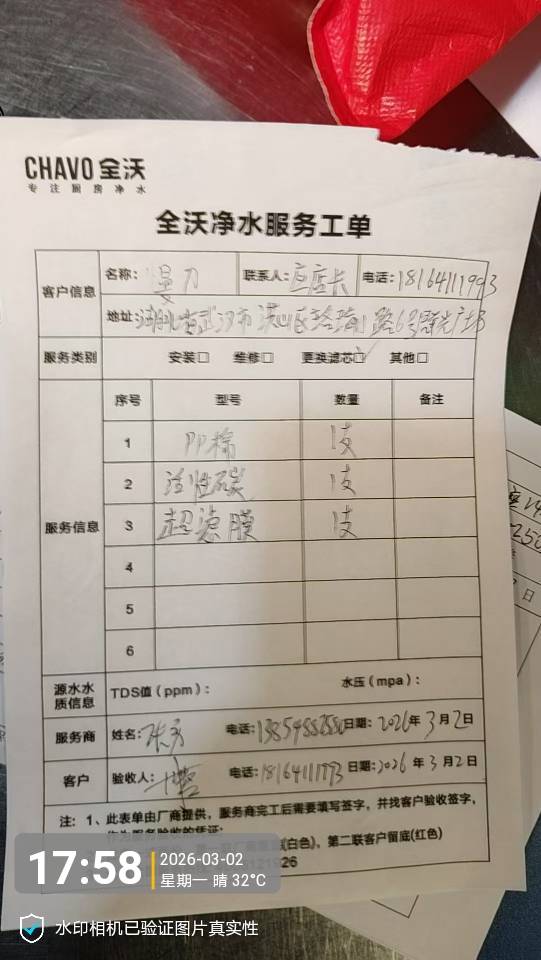 CHAVO 全沃
专注厨房净水
全沃净水服务工单
客户信息 名称： 联系人：店长 电话：18164111993
地址：湖北省武汉市洪山区珞瑜路6号 广场
服务类别 安装□ 维修□ 更换滤芯☑ 其他□
服务信息 序号 型号 数量 备注
1 PP棉 1支
2 活性碳 1支
3 超滤膜 1支
4
5
6
源水水质信息 TDS值（ppm）： 水压（mpa）：
服务商 姓名： 电话： 日期：2026年3月2日
客户 验收人： 电话： 日期：2026年3月2日
注：1、此表单由厂商提供，服务商完工后需要填写签字，并找客户验收签字，
作为服务验收的凭证；
(白色)，第二联客户留底(红色)
17:58
2026-03-02
星期一 晴 32°C
水印相机已验证图片真实性